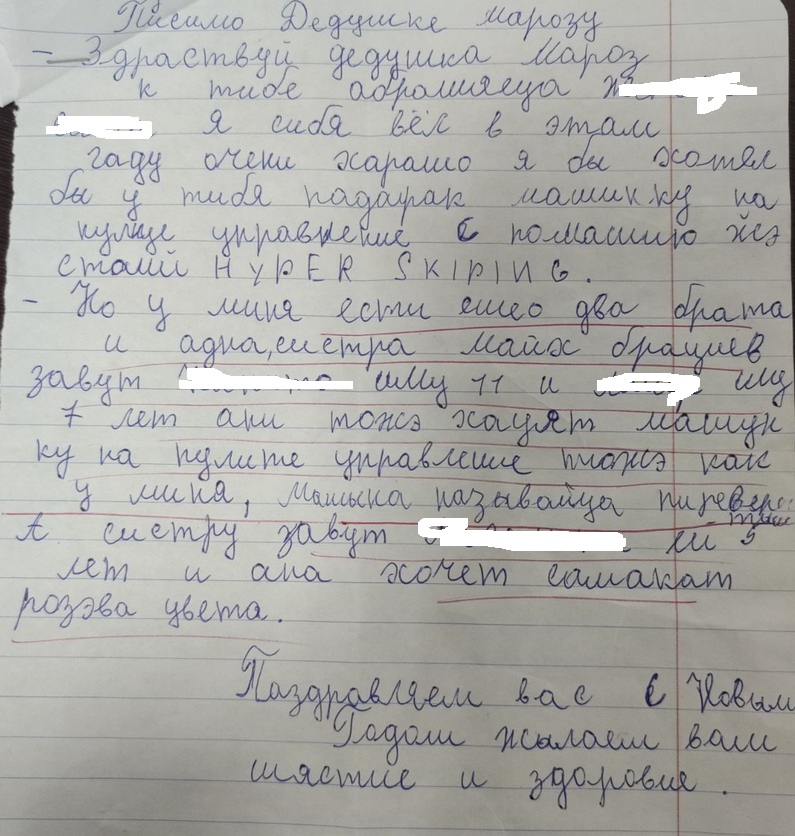 Письмо Дедушке марозу
- Здраствуй дедушка Мароз
к тибе абрашяеца
. Я сибя вёл в этам
гаду очени харашо я бы хотял
бы у тибя падарак машинку на
пулце управление с помашию жэ
сталй HYPER SKIPING.
- Но у миня ести ишео два брата
и адна, систра майх брациев
завут иму 11 и иму
7 лет ани тожэ хацят машун
ку на пулите управление тожэ как
у миня, Машына называйца пиревёр
тыш
А систру завут ей 5
лет и ана хочет самакат
розэва цвета.
Паздравляем вас с Новым
Годом жылаем вам
шястие и здоровие.